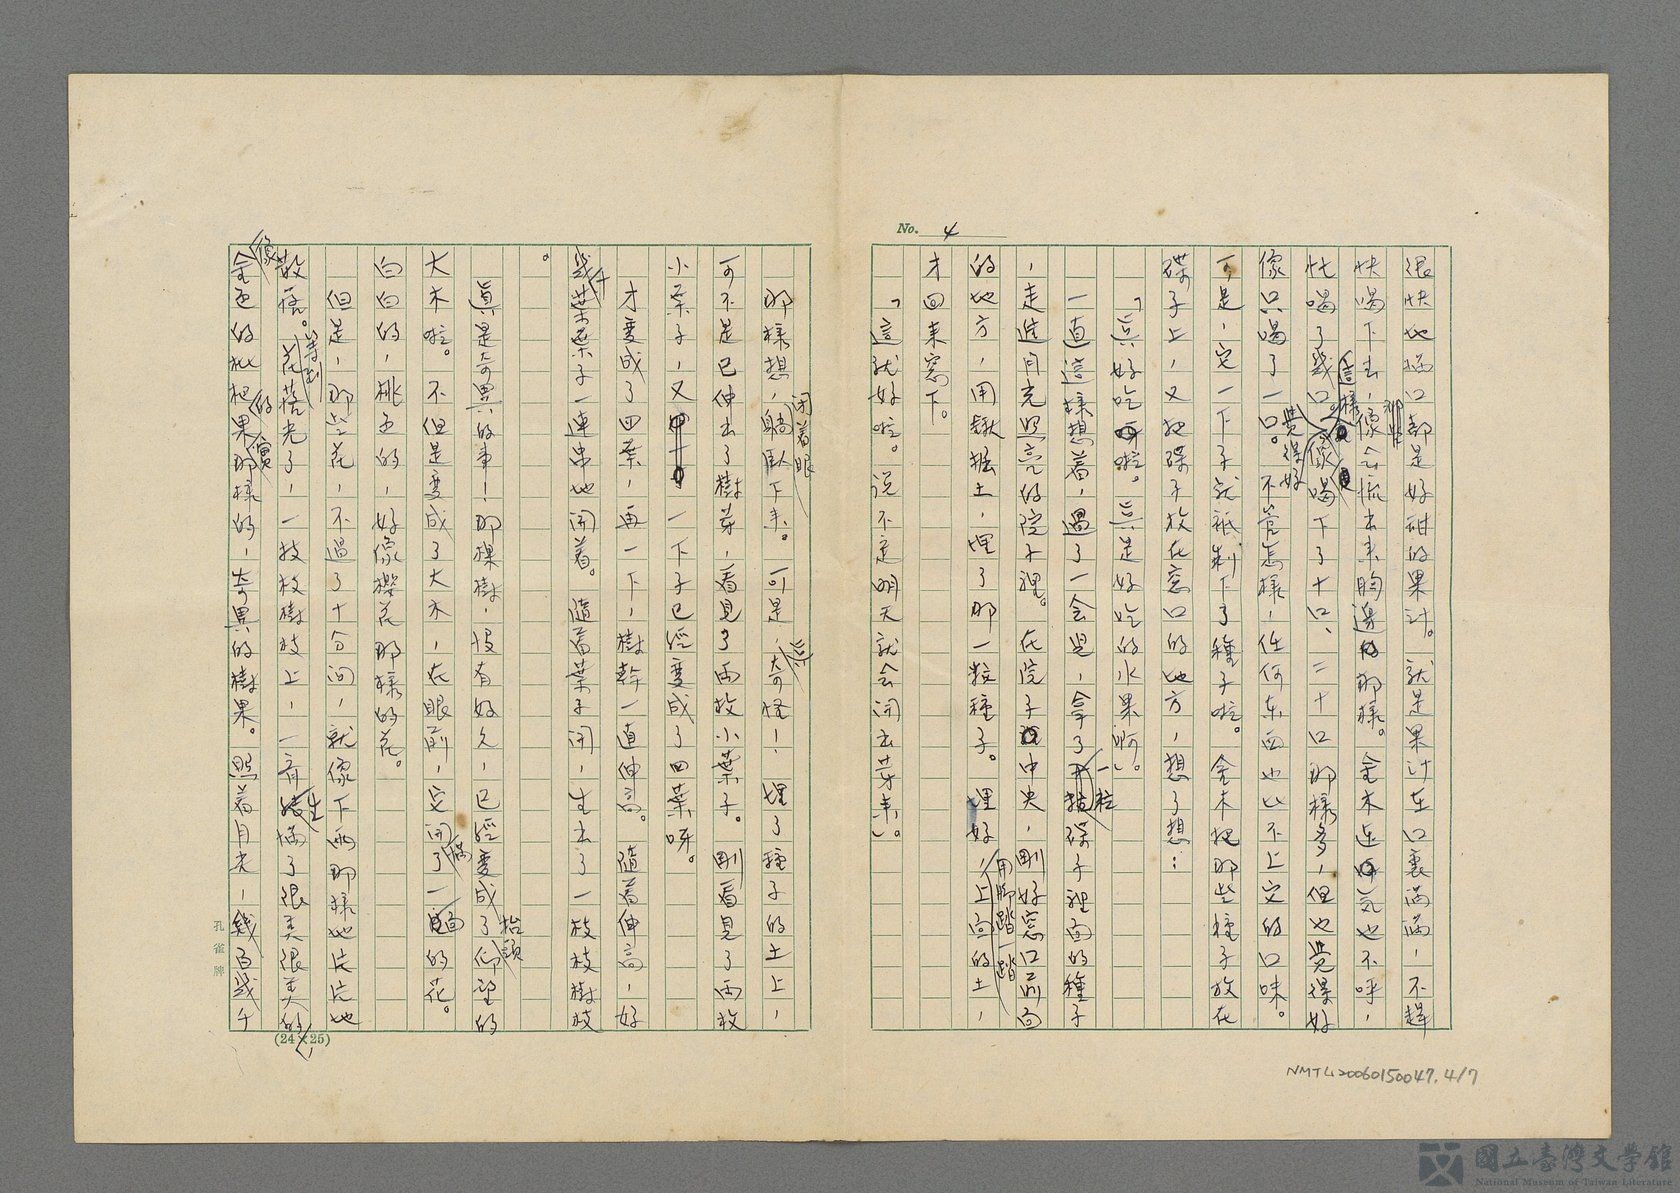 No. 4
很快地滿口都是好甜的果汁。就是果汁在口裏滿滿,不趕
快喝下去,像会流出来胸邊那樣。金木連氣也不呼,
忙喝了幾口。這樣像喝下了十口、二十口那樣多,但也覺得好
像只喝了一口。不管怎樣,任何东西也比不上它的口味。
覺得好
可是,它一下子就祇剩下了種子啦。金木把那些種子放在
碟子上,又把碟子放在窓口的地方,想了想:
「真好吃啦。真是好吃的水果啊」。
一直這樣想着,過了一会兒,拿了一粒碟子裡面的種子
,走進月光照亮的院子裡。在院子中央,剛好窓口前面
的地方,用鍬掘土,埋了那一粒種子。埋好,上面的土,
用脚踏一踏
才回来窓下。
「這就好啦。说不定明天就会開出芽来」。
那樣想,躺臥下来。可是,奇怪!埋了種子的土上,
閉着眼
真
可不是已伸出了樹芽,看見了兩枚小葉子。剛看見了兩枚
小葉子,又一下子已經變成了四葉呀。
才變成了四葉,再一下,樹幹一直伸高。隨着伸高,好
幾千葉葉子一連串地開着。隨着葉子開,生出了一枝枝樹枝
。
真是奇異的事!那棵樹,沒有好久,已經變成了仰望的
抬頭
大木啦。不但是變成了大木,在眼前,它開滿了一面的花。
白白的,桃色的,好像櫻花那樣的花。
但是,那些花,不過了十分间,就像下雨那樣地片片地
散落。等到花落光了,一枝枝樹枝上,一齊生滿了很美很美的,
像金色的枇杷果的實那樣的,奇異的樹果。照着月光,幾百幾千
孔雀牌
(24×25)
NMTL20060150047.4/7
國立臺灣文學館
National Museum of Taiwan Literature